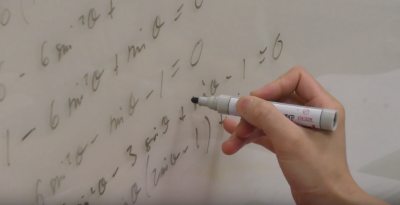 - 6 sin²θ + sin θ = 0
1 - 6 sin²θ + sin θ = 0
6 sin²θ - sin θ - 1 = 0
6 sin²θ - 3 sin θ + sin θ - 1 = 0
sin θ (2 sin θ - 1)